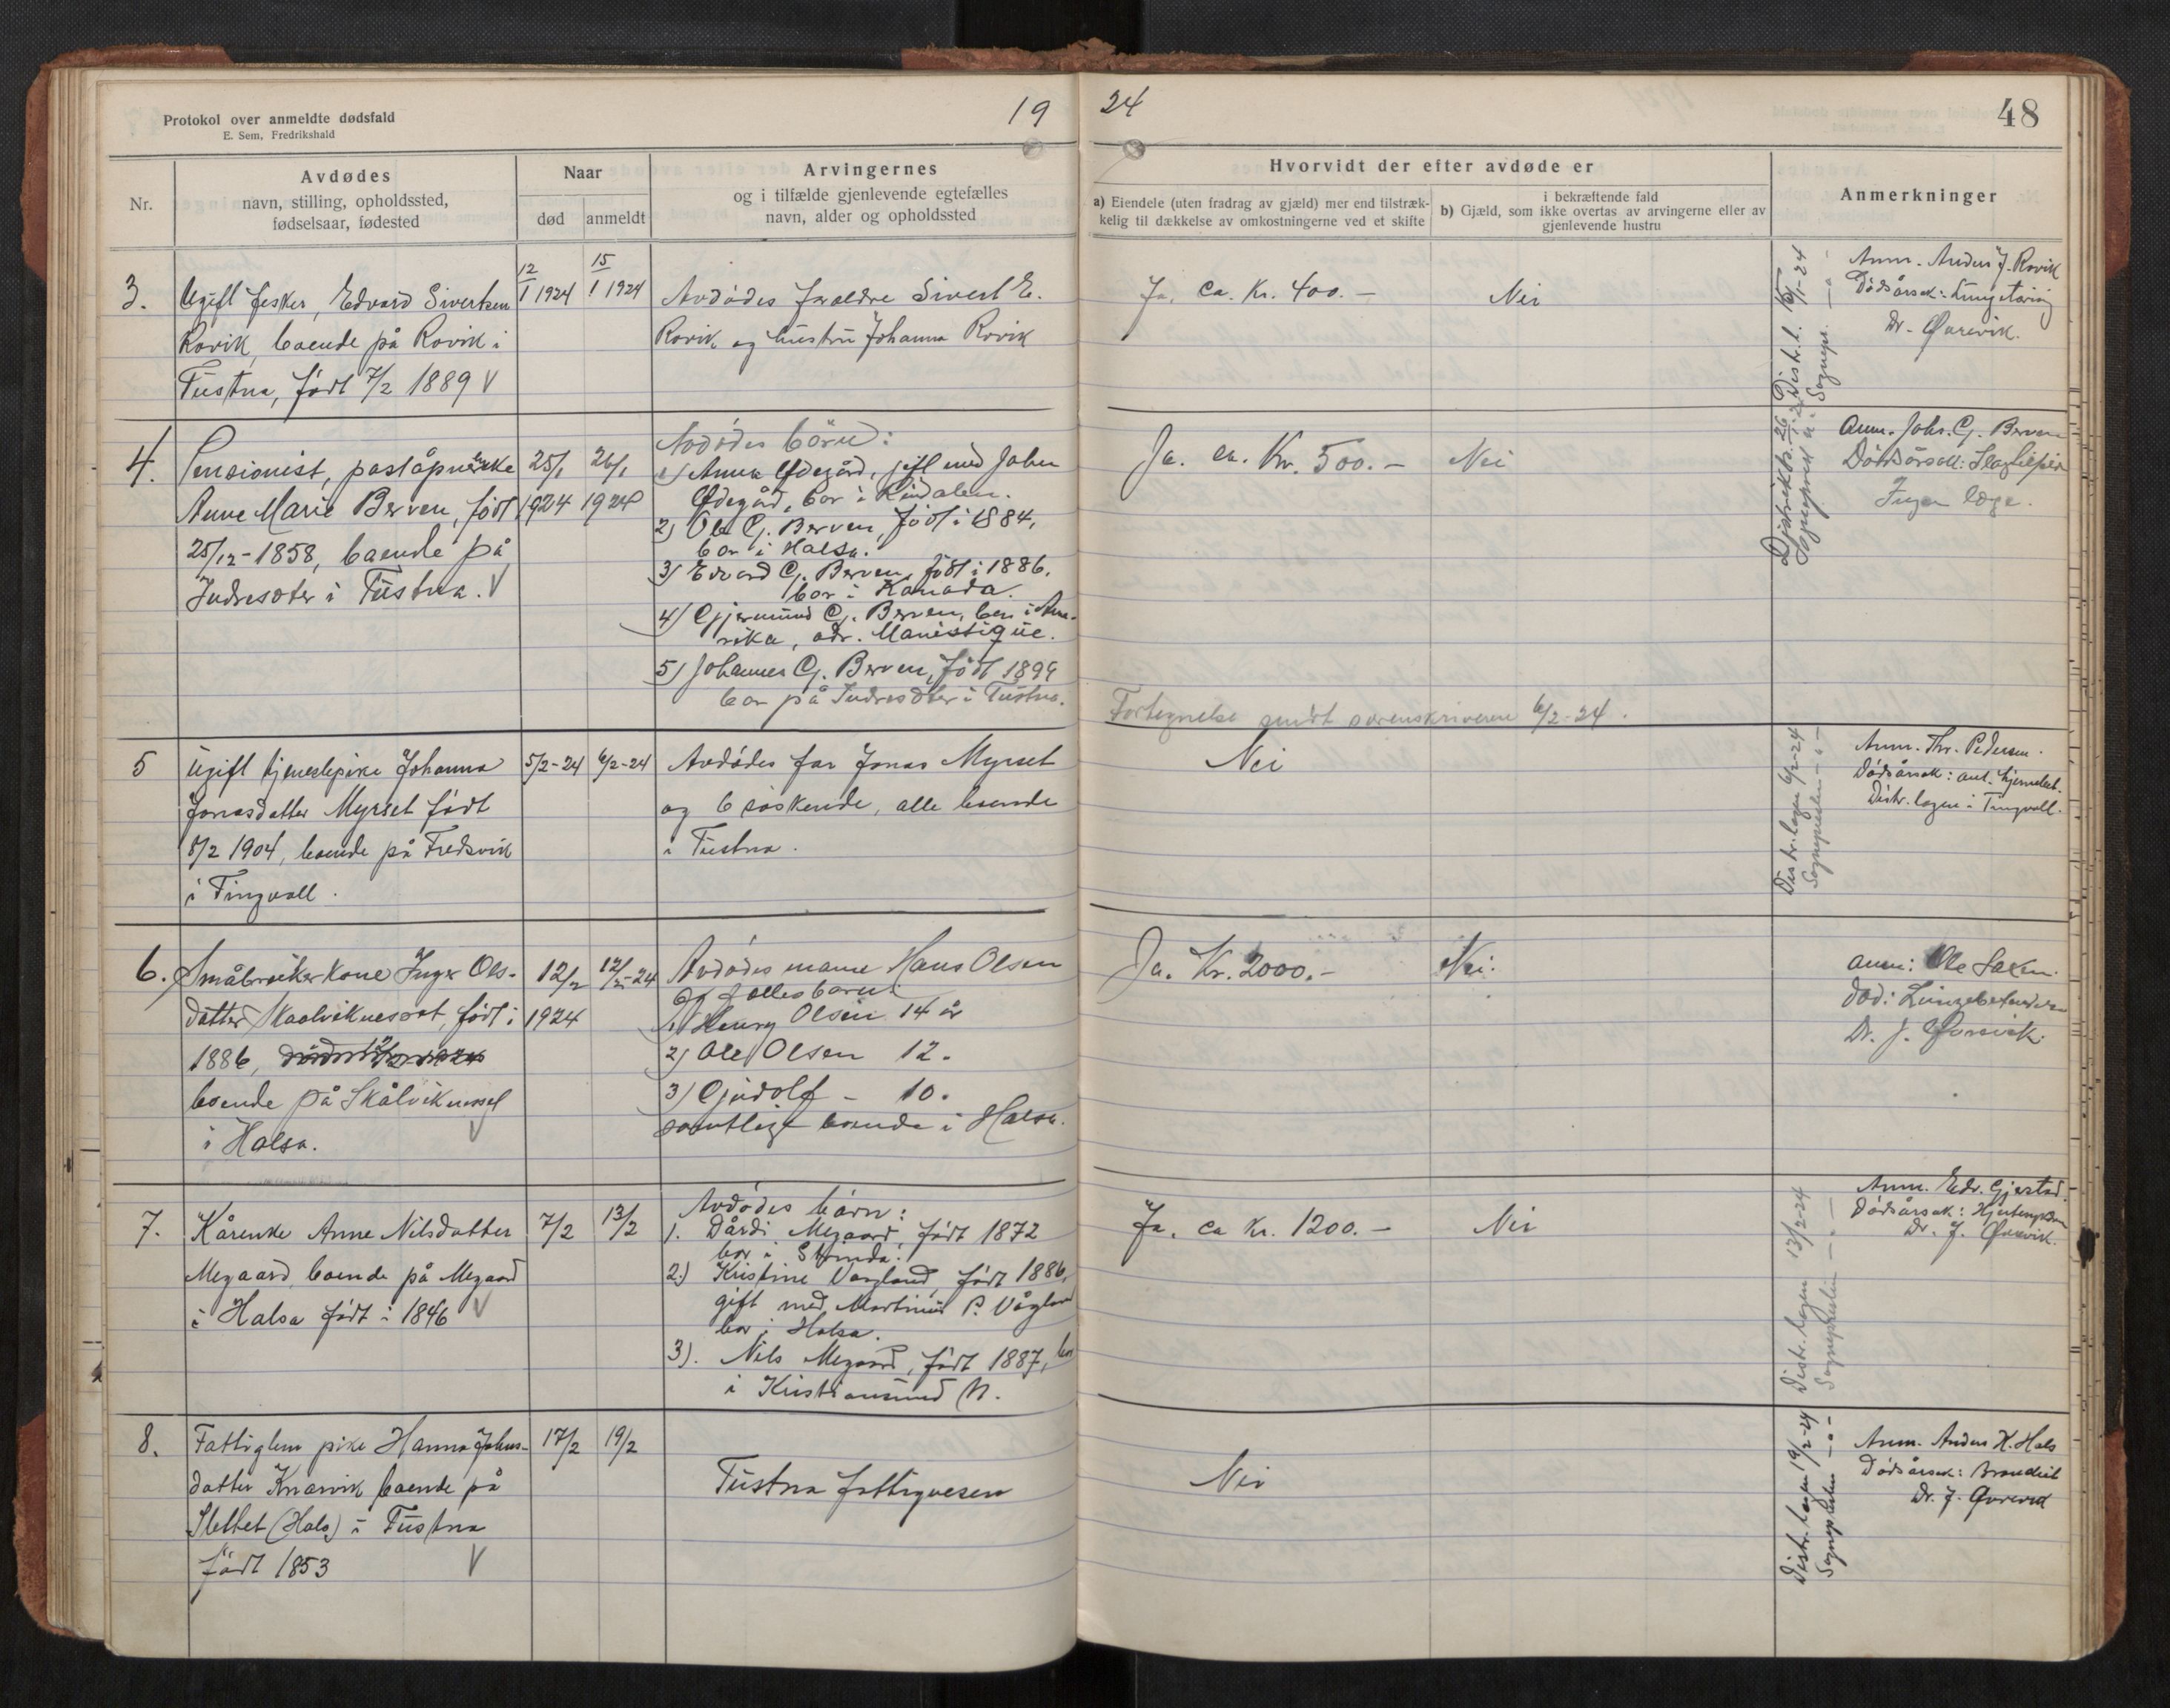 Protokol over anmeldte dødsfald
E. Sem, Fredrikshald
19
24
48
Nr.
Avdødes
navn, stilling, opholdssted,
fødselsaar, fødested
Naar
død
anmeldt
Arvingernes
og i tilfælde gjenlevende egtefælles
navn, alder og opholdssted
Hvorvidt der efter avdøde er
a) Eiendele (uten fradrag av gjæld) mer end tilstræk-
kelig til dækkelse av omkostningerne ved et skifte
i bekræftende fald
b) Gjæld, som ikke overtas av arvingerne eller av
gjenlevende hustru
Anmerkninger
3.
Ugift fisker, Edvard Sivertsen
Rovik, boende på Rovik i
Tustna, født 7/2 1889 V
12/1 1924
15/1 1924
Avdødes forældre Sivert E.
Rovik og hustru Johanna Rovik
Ja, ca. Kr. 400.-
Nei
Distr.l. 15/1-24
Sognepr. - " -
Anm. Anders J. Rovik
Dødsårsak: Lungetæring
Dr. Øvrevik.
4.
Pensionist, poståpnerske
Anne Marie Berven, født
25/12-1858, boende på
Indresæter i Tustna. V
25/1
1924
26/1
1924
Avdødes børn:
1) Anna Ødegård, gift med John
Ødegård, bor i Rindalen.
2) Ole G. Berven, født i 1884,
bor i Halsa.
3) Edvard G. Berven, født i 1886,
bor i Kanada.
4) Gjermund G. Berven, bor i Ame-
rika, adr. Manistique.
5) Johannes G. Berven, født 1899
bor på Indresæter i Tustna.
Ja. ca. Kr. 500.-
Nei
Fortegnelse sendt sorenskriveren 6/2-24.
Anm. Johs. G. Berven
Dødsårsak: Slagtilfælde
Ingen læge.
5
Ugift tjenestepike Johanna
Jonasdatter Myrset født
8/2 1904, boende på Fredsvik
i Tingvoll.
5/2-24
6/2-24
Avdødes far Jonas Myrset
og 6 søskende, alle boende
i Tustna.
Nei
Distr.lægen 6/2-24
Sognepresten - " -
Anm. Thr. Pedersen.
Dødsårsak: ant. hjernebet.
Distr. lægen i Tingvoll.
6.
Småbrukerkone Inger Ols-
datter Skaalviknesset, født i
1886,
boende på Skålviknesset
i Halsa. V
12/2
1924
12/2-24
Avdødes mann Hans Olsen
og fællesbarn:
1) Henry Olsen 14 år
2) Ole Olsen 12.
3) Gjudolf - 10.
samtlige boende i Halsa.
Ja. Kr. 2000.-
Nei.
Anm: Ole Saxen.
Død: Lungebetændelse
Dr. J. Øvrevik.
7.
Kårenke Anne Nilsdatter
Megaard, boende på Megaard
i Halsa født i 1846 V
7/2
13/2
Avdødes børn:
1. Dårdi Megaard, født 1872
bor i Strinda.
2.) Kristine Vaagland, født 1886,
gift med Martinus P. Vågland
bor i Halsa.
3). Nils Megaard, født 1887, bor
i Kristiansund N.
Ja, ca Kr. 1200.-
Nei
Distr. lægen 13/2-24
Sognepresten - " -
Anm. Edv. Gjerstad.
Dødsårsak: Hjertesykdom
Dr. J. Øvrevik.
8.
Fattiglem pike Hanna Johns-
datter Knarvik boende på
Slettet (Hals) i Tustna
født 1853 V
17/2
19/2
Tustna fattigvesen
Nei
Distr. lægen 19/2-24
Sognepresten - " -
Anm. Anders K. Hals
Dødsårsak: Bronchit
Dr. J. Øvrevik